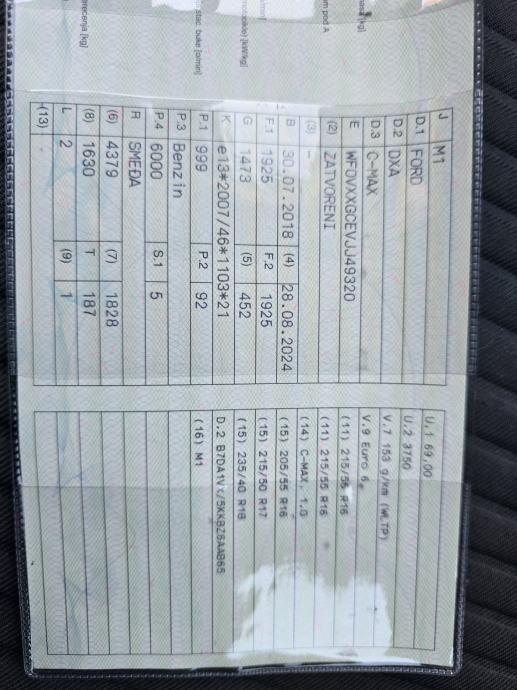 masa [kg]
m pod A
[kW/kg]
stac. buke [o/min]
J M1
D.1 FORD
D.2 DXA
D.3 C-MAX
E WF0VXXGCEVJJ49320
(2) ZATVORENI
(3) -
B 30.07.2018 (4) 28.08.2024
F.1 1925 F.2 1925
G 1473 (5) 452
K e13*2007/46*1103*21
P.1 999 P.2 92
P.3 Benzin
P.4 6000 S.1 5
R SMEĐA
(6) 4379 (7) 1828
(8) 1630 T 187
L 2 (9) 1
(13)
U.1 69,00
U.2 3750
V.7 153 g/km (WLTP)
V.9 Euro 6
(11) 215/55 R16
(11) 215/55 R16
(14) C-MAX, 1.0
(15) 205/55 R16
(15) 215/50 R17
(15) 235/40 R18
D.2
(16) M1